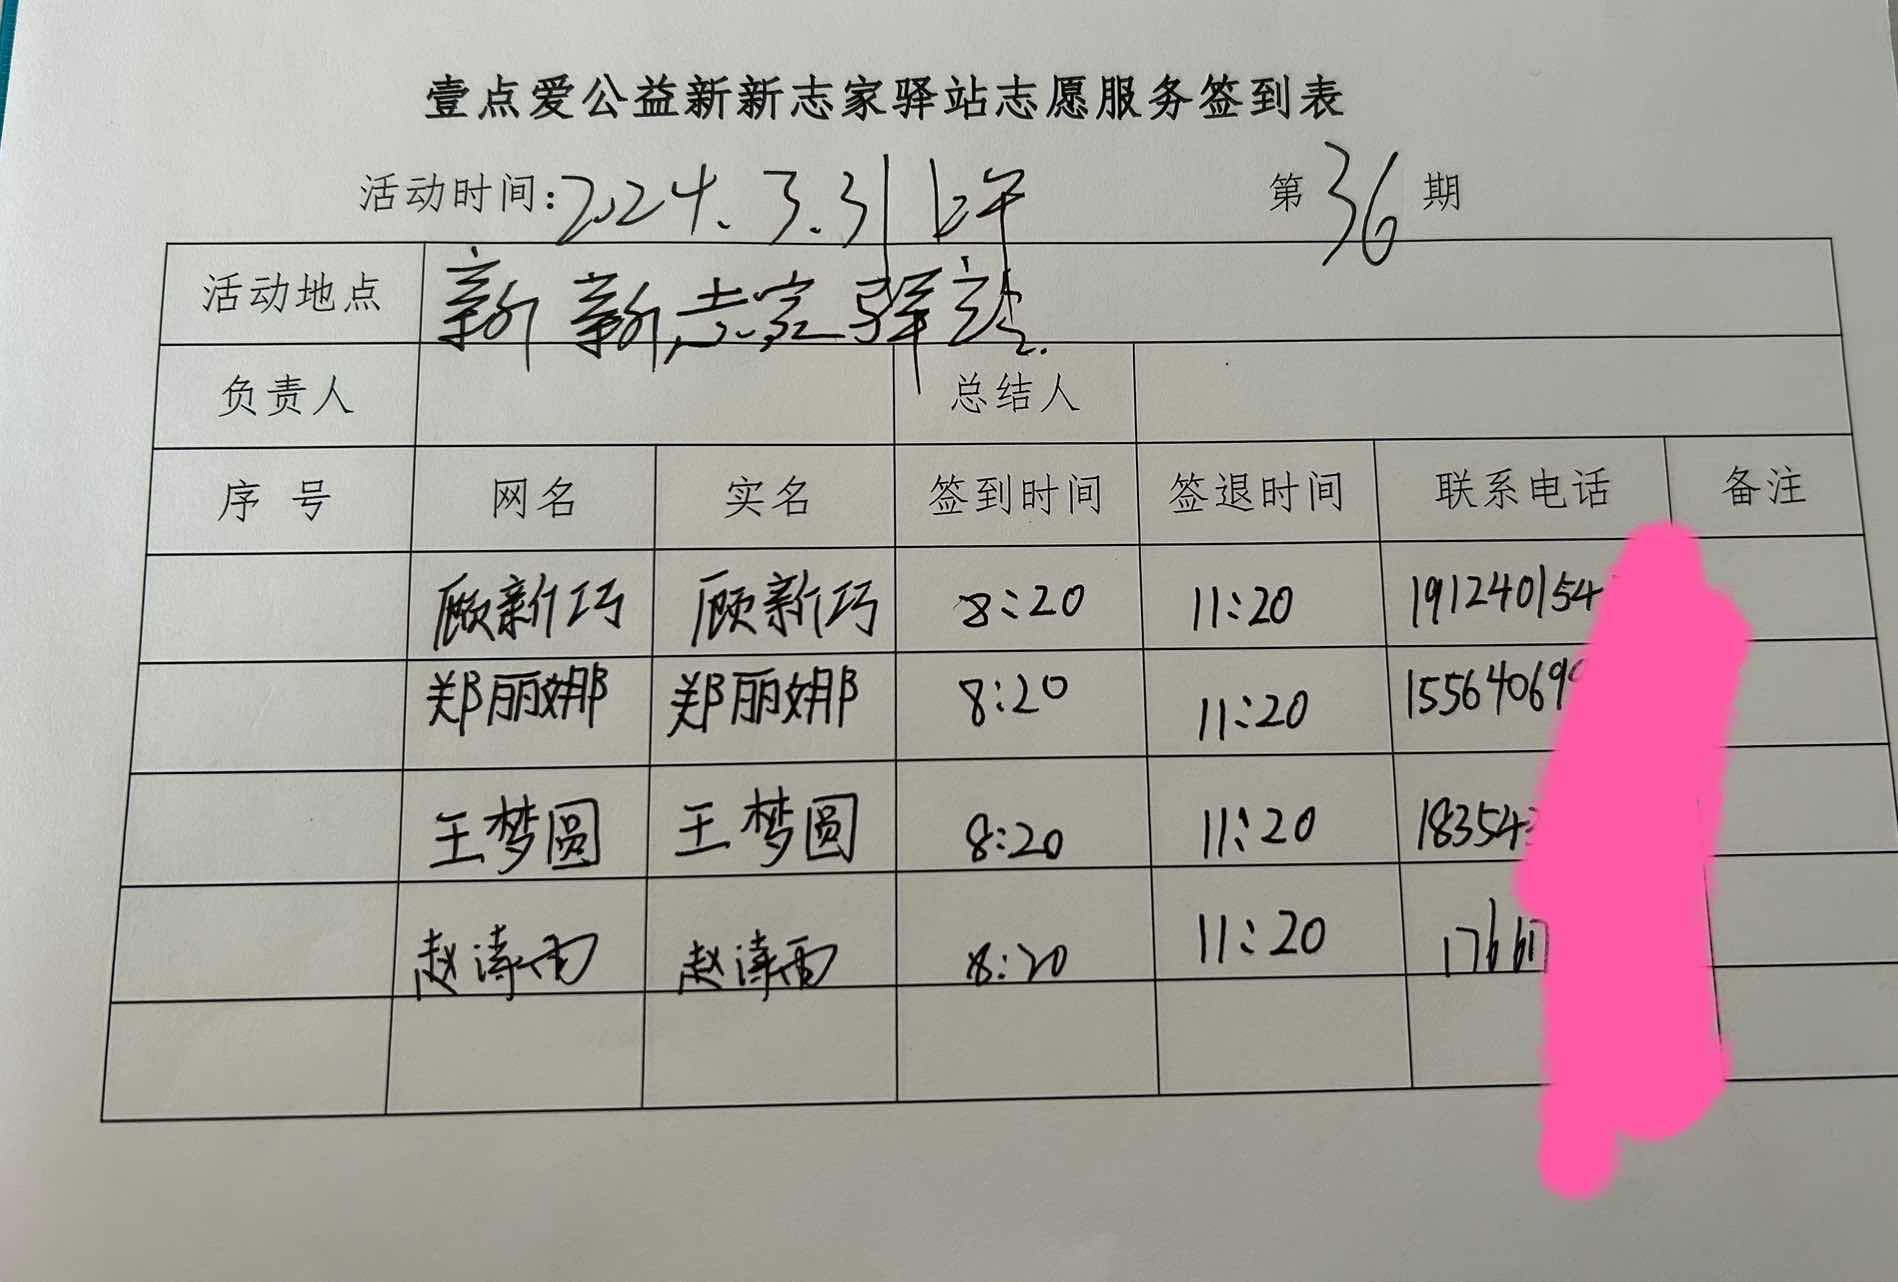 壹点爱公益新新志家驿站志愿服务签到表
活动时间:2024.3.31上午 第36期
活动地点 新新志家驿站.
负责人 总结人
序号 网名 实名 签到时间 签退时间 联系电话 备注
顾新巧 顾新巧 8:20 11:20 191240154
郑丽娜 郑丽娜 8:20 11:20 15564069
王梦圆 王梦圆 8:20 11:20 18354
赵涛雨 赵涛雨 8:20 11:20 17661